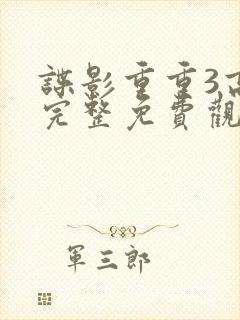 諜影重重3高
完整免費觀
軍三郎